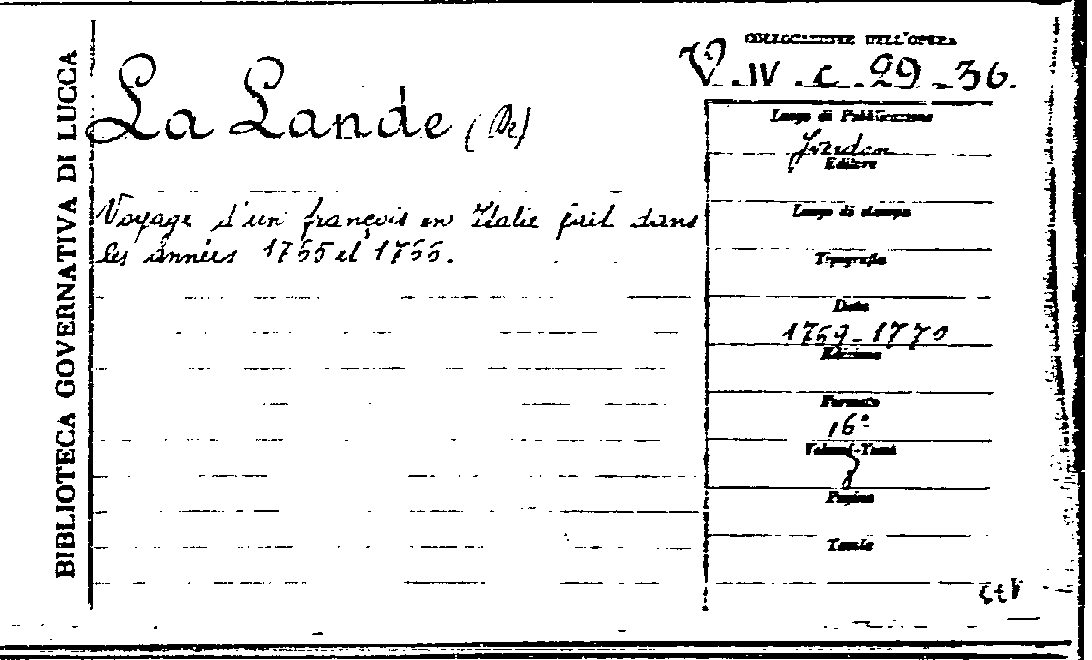 BIBLIOTECA GOVERNATIVA DI LUCCA
COLLOCAZIONE DELL'OPERA
V.IV.c.29-36.
La Lande (De)
Voyage d'un françois en Italie fait dans
les années 1765 et 1766.
Luogo di Pubblicazione
Yverdon
Editore
Luogo di stampa
Tipografia
Data
1769-1770
Edizione
Formato
16°
Volumi-Tomi
8
Pagine
Tavole